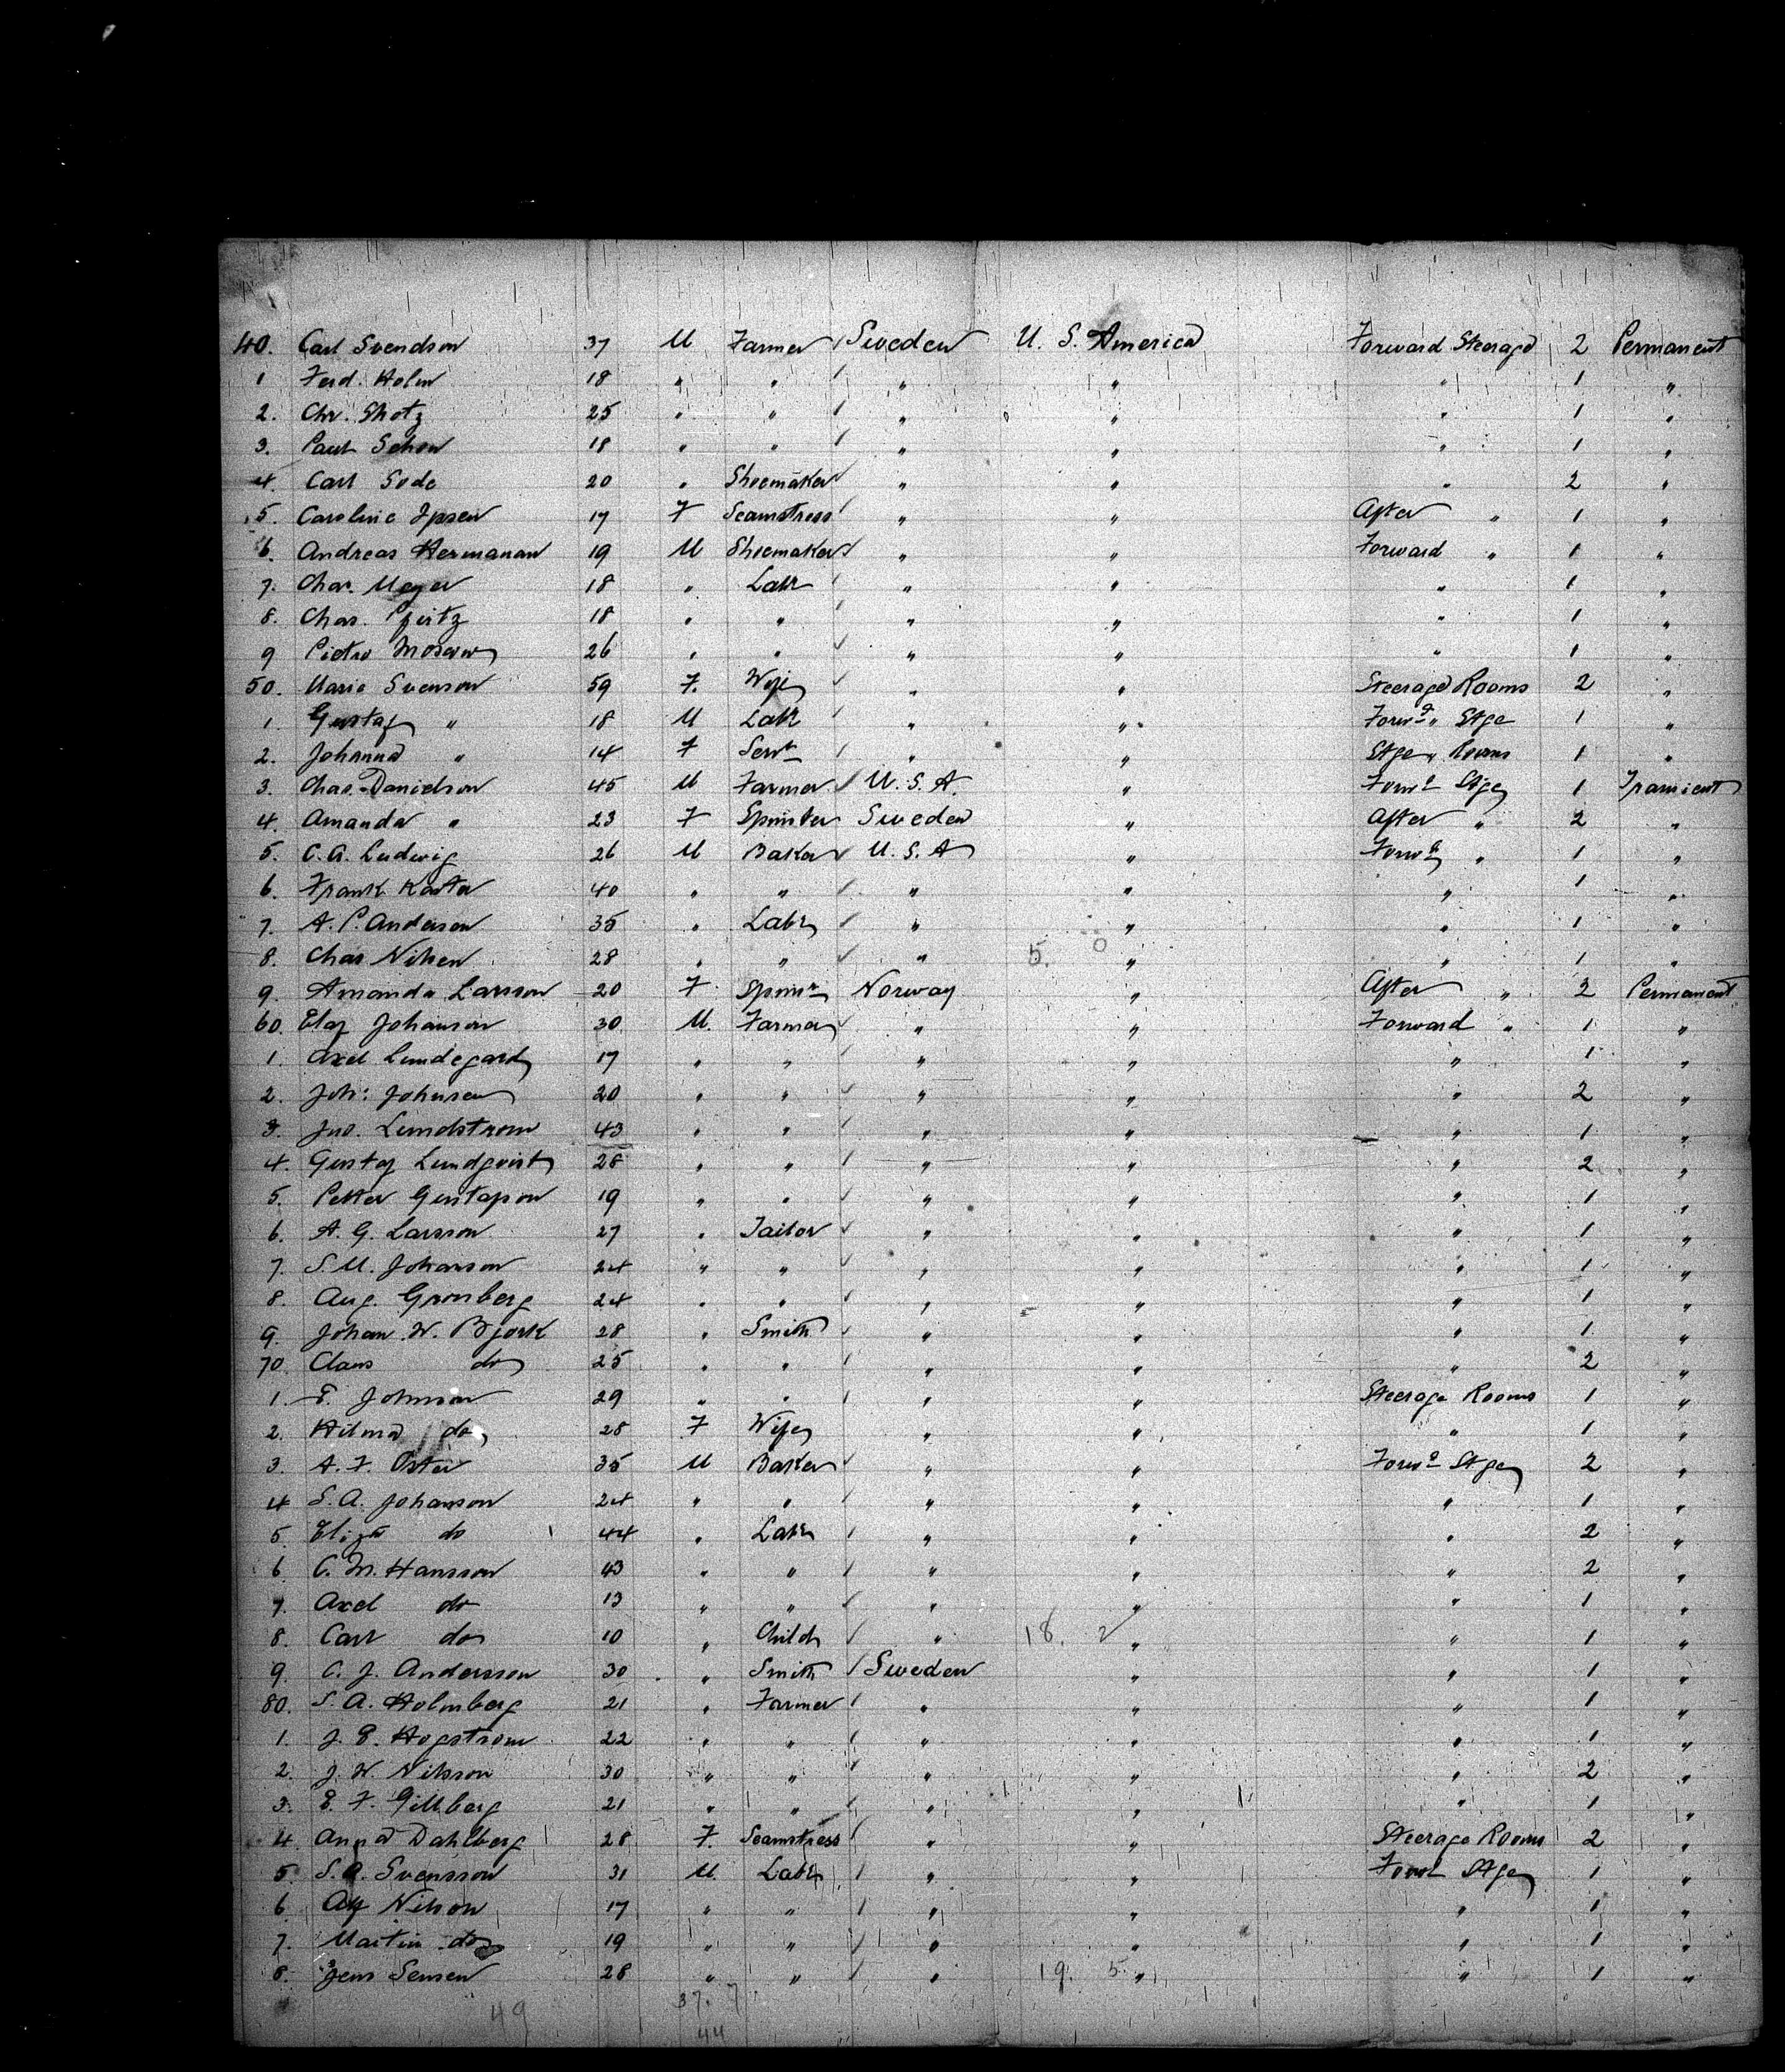 40. Carl Svendson 37 M Farmer Sweden U. S. America Forward Steerage 2 Permanent
1 Ferd. Holm 18 " " " " " 1 "
2. Chr. Shotz 25 " " " " " 1 "
3. Paul Schow 18 " " " " " 1 "
4. Carl Sode 20 " Shoemaker " " " 2 "
5. Caroline Ipsen 17 F Seamstress " " After " 1 "
6. Andreas Hermanan 19 M Shoemaker " " Forward " 1 "
7. Chas. Meyer 18 " Labr " " " 1 "
8. Chas. 18 " " " " " 1 "
9 Pietro 26 " " " " " 1 "
50. Maria Svenson 59 F. Wife " " Steerage Rooms 2 "
1. Gustaf " 18 M Labr " " Forwd " Stge 1 "
2. Johanna " 14 F Servt " " Stge " Rooms 1 "
3. Chas. Danielson 45 M Farmer U. S. A. " Forwd Stge 1 Transient
4. Amanda " 23 F Spinster Sweden " After " 2 "
5. C. A. Ludwig 26 M Baker U. S. A " Forwd " 1 "
6. Frank Karter 40 " " " " " 1 "
7. A. P. Anderson 35 " Labr " " " 1 "
8. Chas Nilsen 28 " " " 5. 0 " " 1 "
9. Amanda Larsson 20 F Spinsr Norway " After " 2 Permanent
60. Elof Johanson 30 M. Farmer " " Forward " 1 "
1. Axel Lundegard 17 " " " " " 1 "
2. Joh: Johnsen 20 " " " " " 2 "
3. Jno. Lundstrom 43 " " " " " 1 "
4. Gustaf Lundqvist 28 " " " " " 2 "
5. Petter Gustafson 19 " " " " " 1 "
6. A. G. Larsson 27 " Tailor " " " 1 "
7. S. M. Johanson 24 " " " " " 1 "
8. Aug. Gronberg 24 " " " " " 1 "
9. Johan W. Bjork 28 " Smith " " " 1 "
70 Claus do 25 " " " " " 2 "
1. E. Johnson 29 " " " " Steerage Rooms 1 "
2. Hilma do 28 F Wife " " " 1 "
3. A. F. Oster 35 M Baker " " Forwd Stge 2 "
4 S. A. Johanson 24 " " " " " 1 "
5. Eliza do 44 " Labr " " " 2 "
6. C. M. Hansson 43 " " " " " 2 "
7. Axel do 13 " " " " " 1 "
8. Carl do 10 " Child " 18. 2 " " 1 "
9. C. J. Andersson 30 " Smith Sweden " " 1 "
80. S. A. Holmberg 21 " Farmer " " " 1 "
1. J. E. Hogstrom 22 " " " " " 1 "
2. J. W Nilsson 30 " " " " " 2 "
3. E. F. Gillberg 21 " " " " " 1 "
4. Anna Dahlberg 28 F. Seamstress " " Steerage Rooms 2 "
5. S. A. Svensson 31 M. Labr " " Forwd Stge 1 "
6. Alf Nilson 17 " " " " " 1 "
7. Martin do 19 " " " " " 1 "
8. Jens Sensen 28 " " " 19. 5. " " 1 "
49 37. 7
44